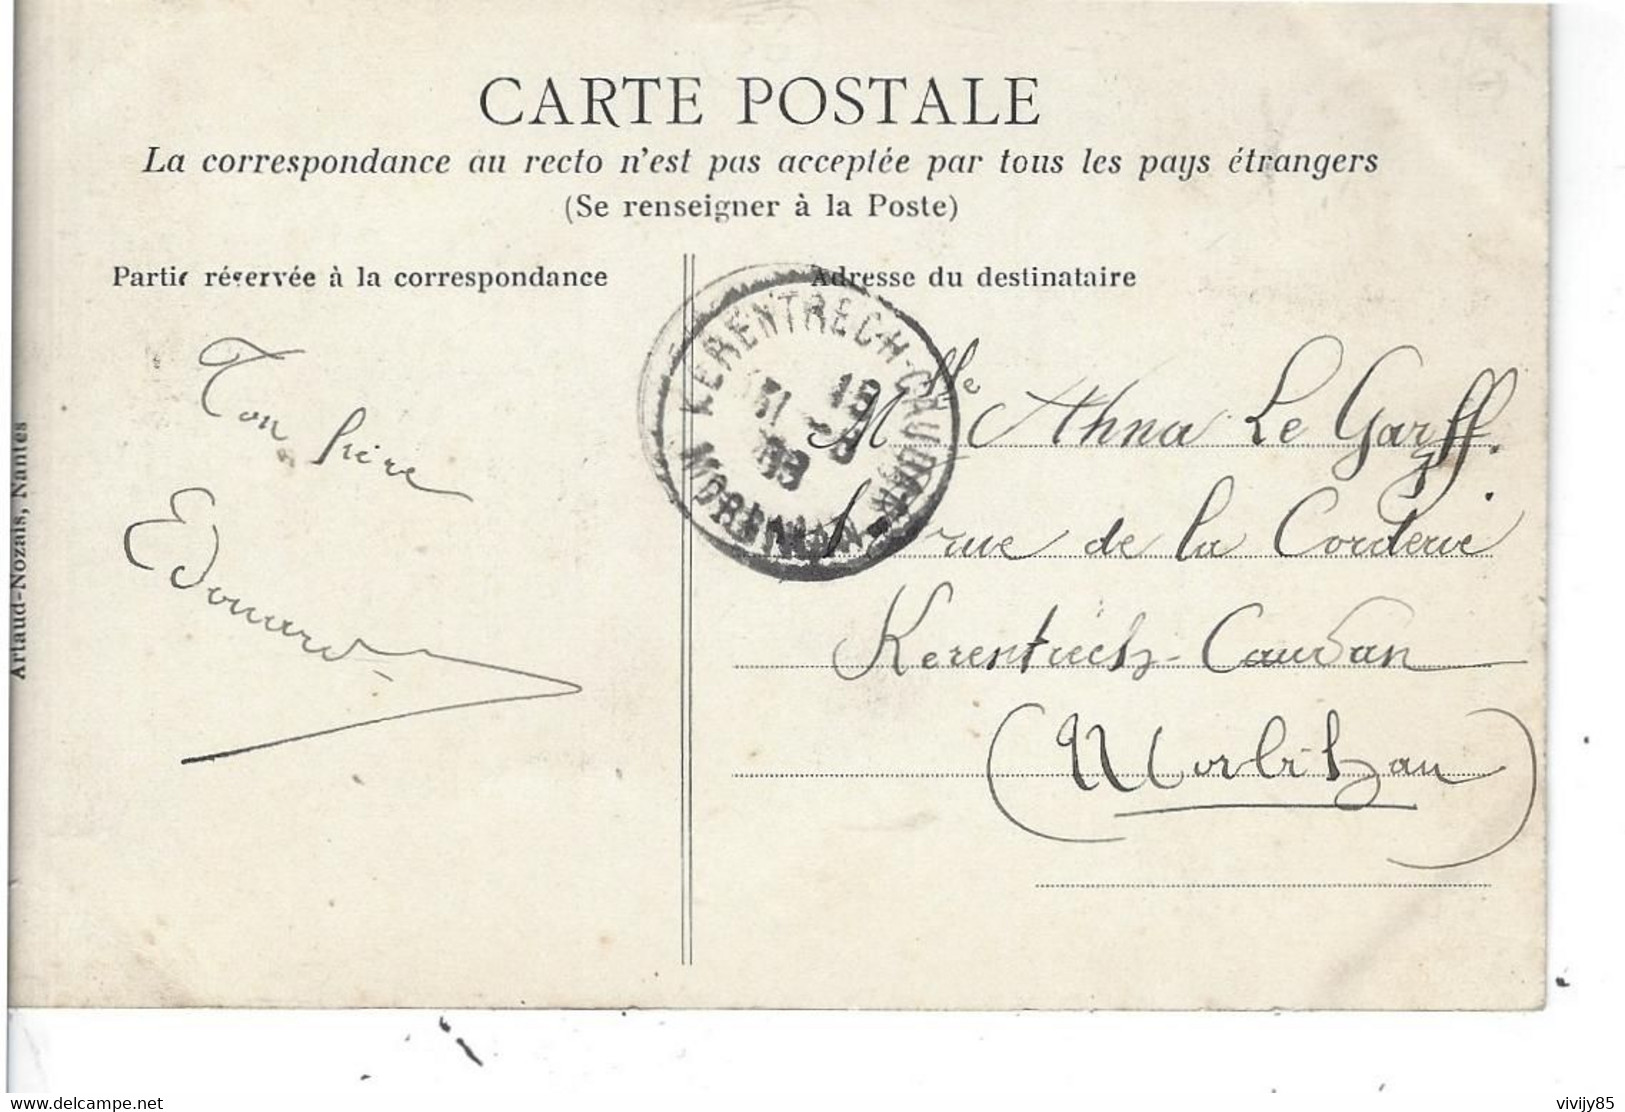 CARTE POSTALE
La correspondance au recto n'est pas acceptée par tous les pays étrangers
(Se renseigner à la Poste)
Partie réservée à la correspondance
Ton frère
Edouard
Artaud-Nozais, Nantes
Adresse du destinataire
KERENTRECH-CAUDAN
MORBIHAN
Mlle Anna Le Garff.
rue de la Corderie
Kerentrech-Caudan
(Morbihan)
www.delcampe.net
vivijy85